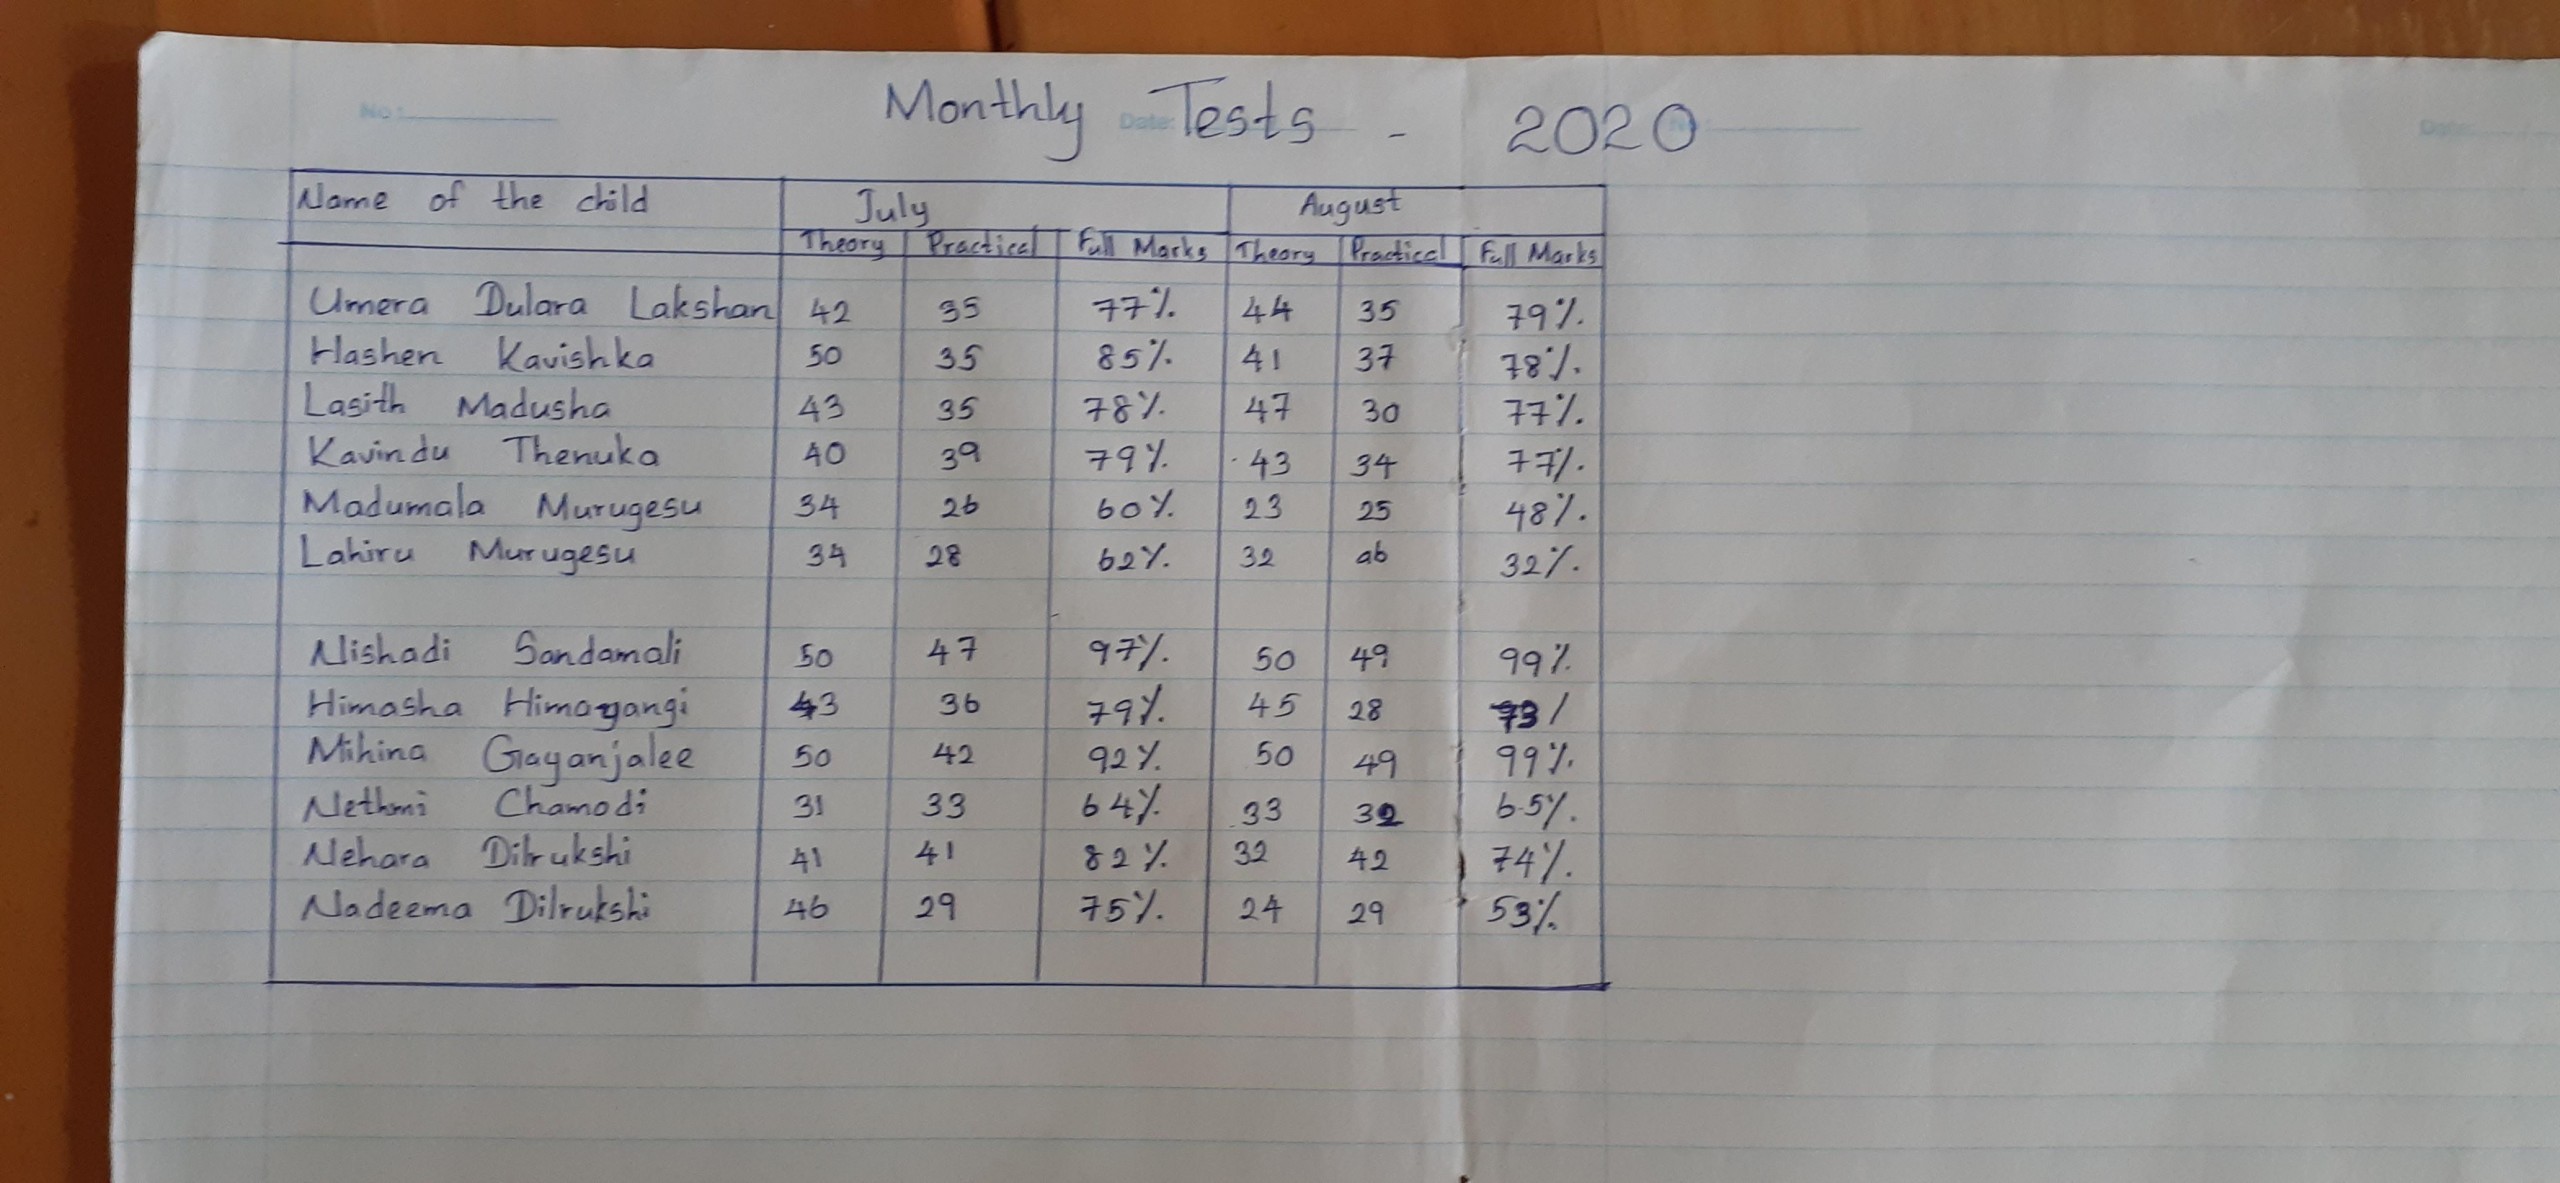 No:
Date:
Date:
Monthly Tests - 2020
Name of the child July August
Theory Practical Full Marks Theory Practical Full Marks
Umera Dulara Lakshan 42 35 77% 44 35 79%
Hashen Kavishka 50 35 85% 41 37 78%
Lasith Madusha 43 35 78% 47 30 77%
Kavindu Thenuka 40 39 79% 43 34 77%
Madumala Murugesu 34 26 60% 23 25 48%
Lahiru Murugesu 34 28 62% 32 ab 32%
Nishadi Sandamali 50 47 97% 50 49 99%
Himasha Himayangi 43 36 79% 45 28 73/
Mihina Gayanjalee 50 42 92% 50 49 99%
Nethmi Chamodi 31 33 64% 33 32 65%
Nehara Dilrukshi 41 41 82% 32 42 74%
Nadeema Dilrukshi 46 29 75% 24 29 53%